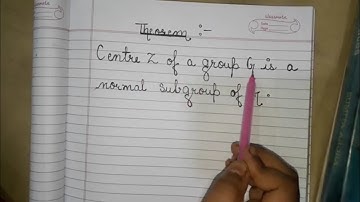 Theorem :-
Centre Z of a group G is a
normal subgroup of G.